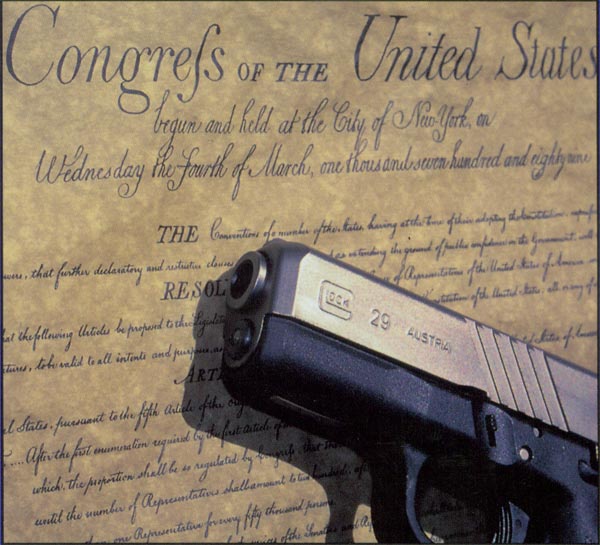 Congreſs OF THE United States
begun and held at the City of New-York, on
Wednesday the Fourth of March, one thousand seven hundred and eighty nine
THE Conventions of a number of the States, having at the time of their adopting the Constitution,
that further declaratory and restrictive clauses
as extending the ground of public confidence in the Government, will
RESOL
of Representatives of the United States of America
the following Articles be proposed to the Legislat
stitution of the United States; all or any of
to be valid to all intents and purposes, as
ARTI
States, pursuant to the fifth Article of the Orig
After the first enumeration required by the first Article of
which, the proportion shall be so regulated by Congress, that
until the number of Representatives shall amount to two hundred,
one Representative for every fifty thousand persons.
of the Senators and
GLOCK 29 AUSTRIA